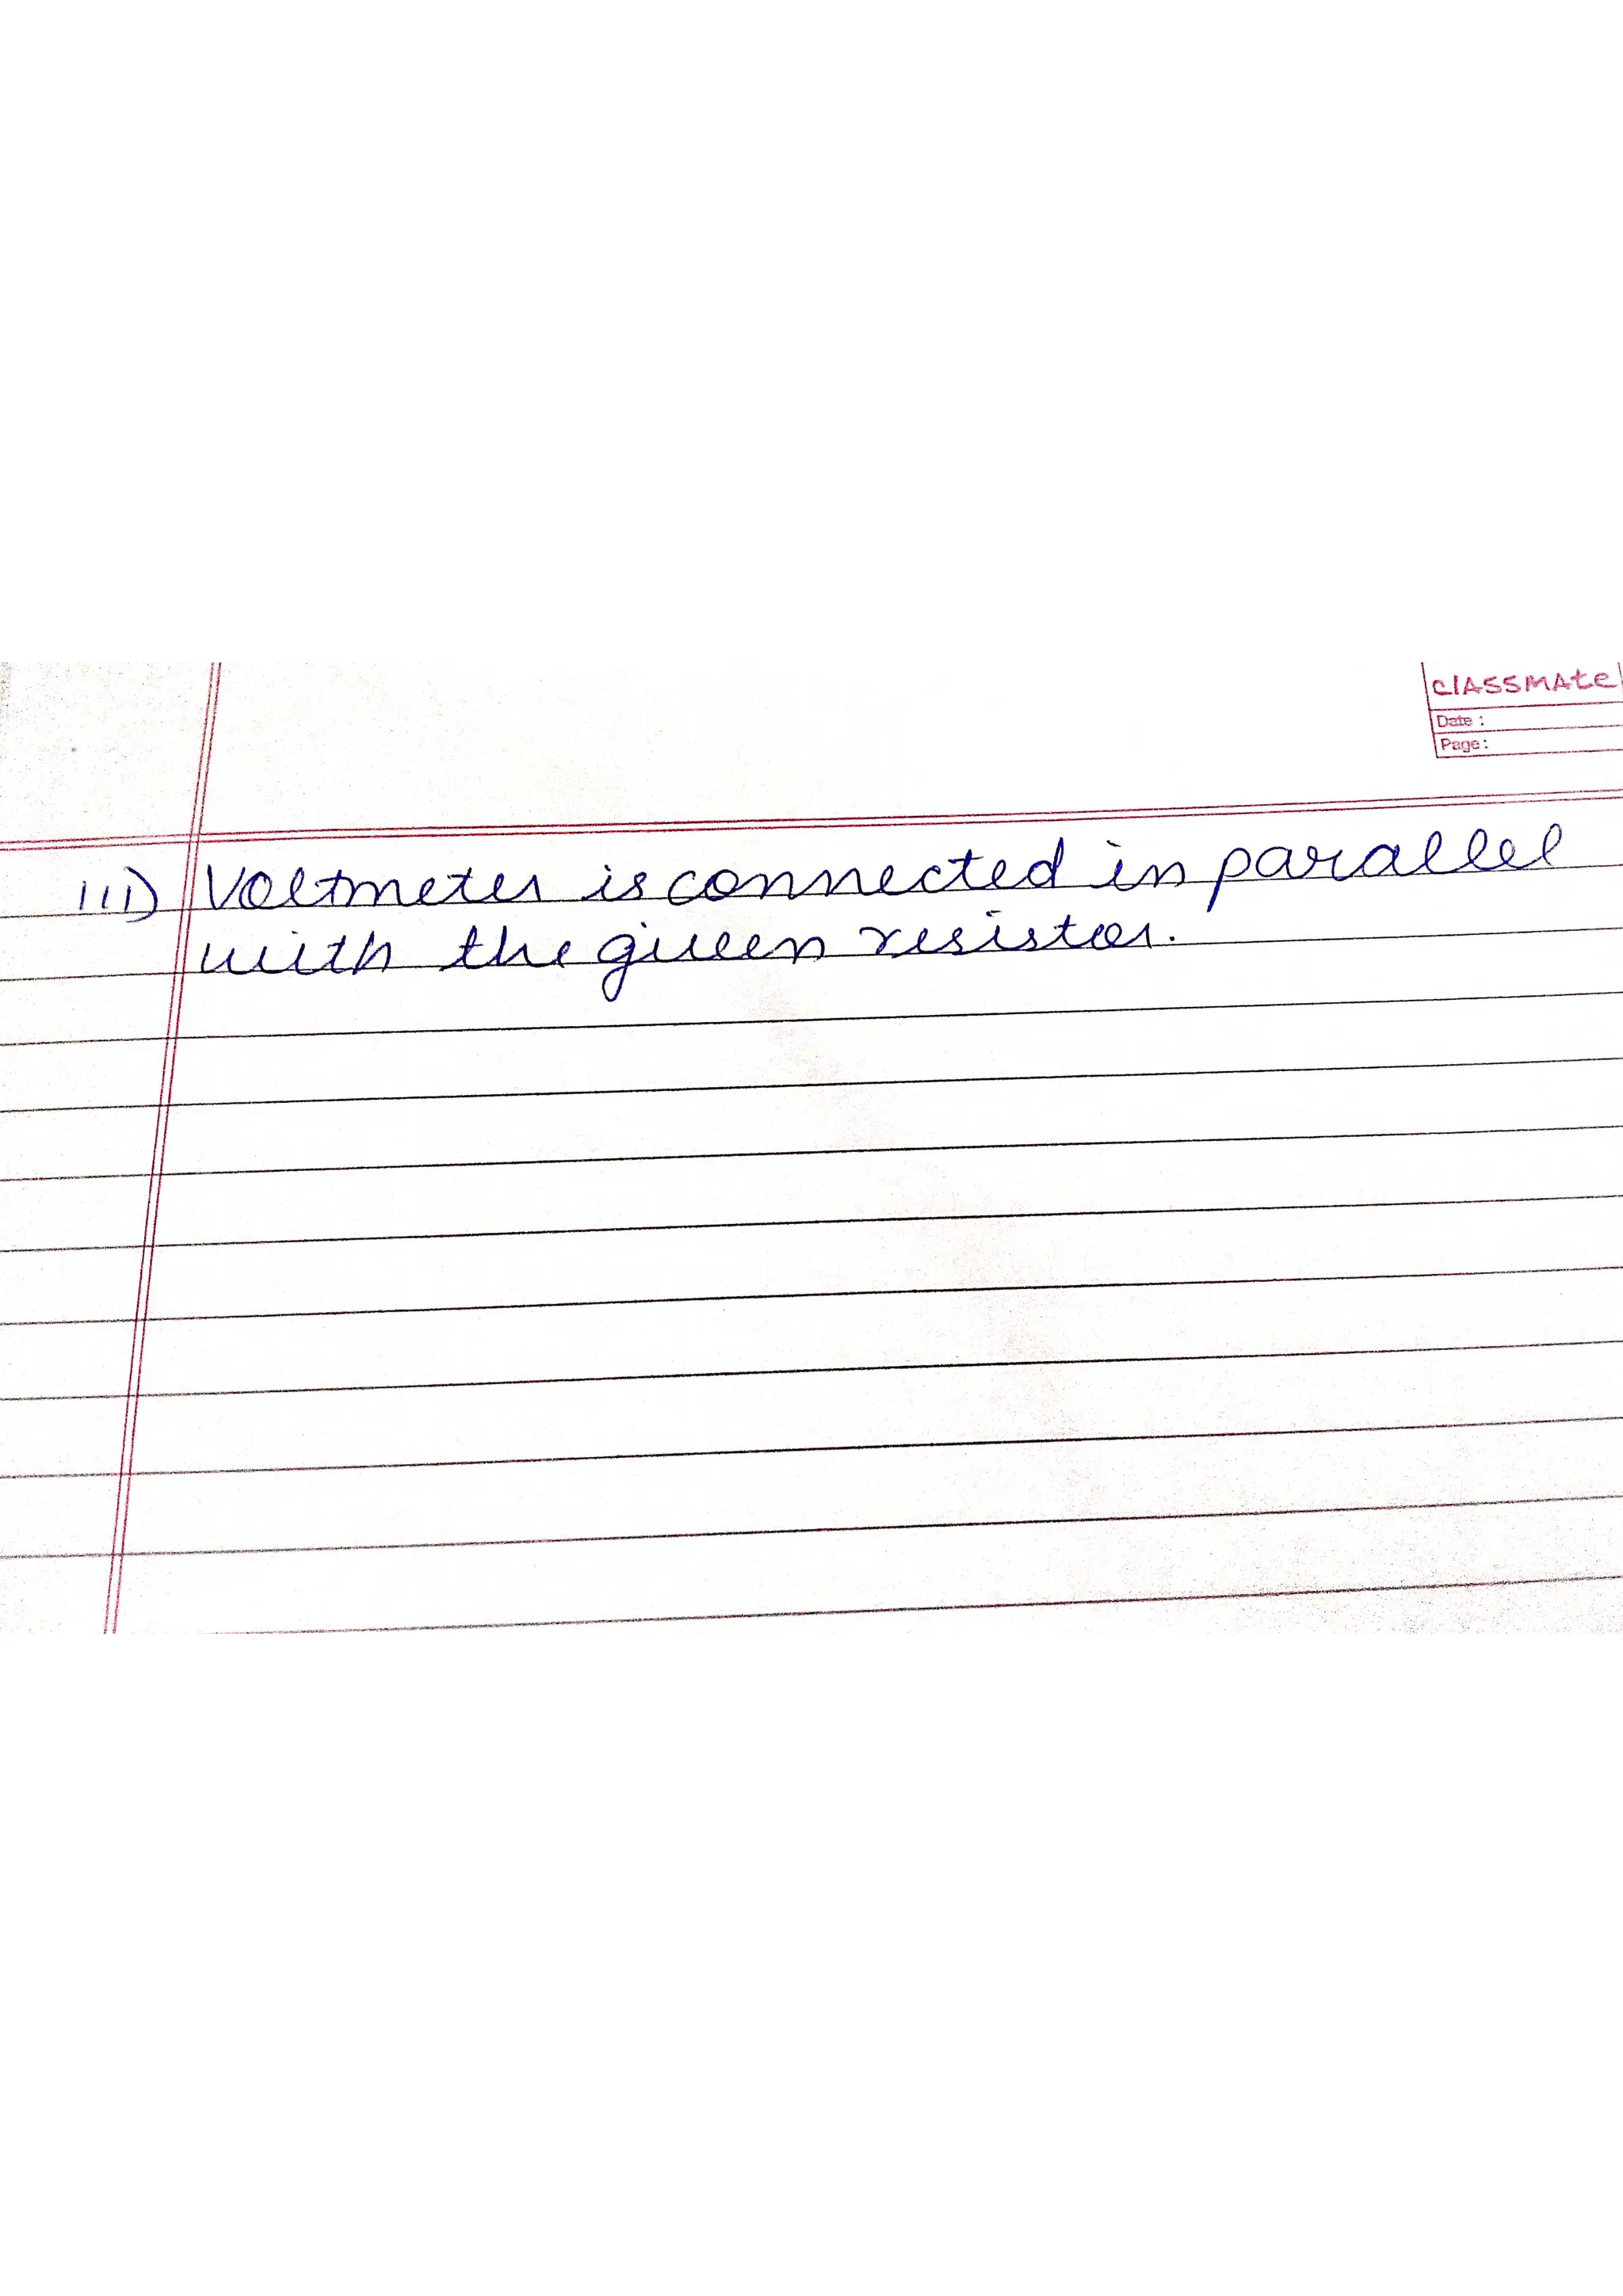 classmate
Date :
Page :
iii) Voltmeter is connected in parallel
with the given resistor.